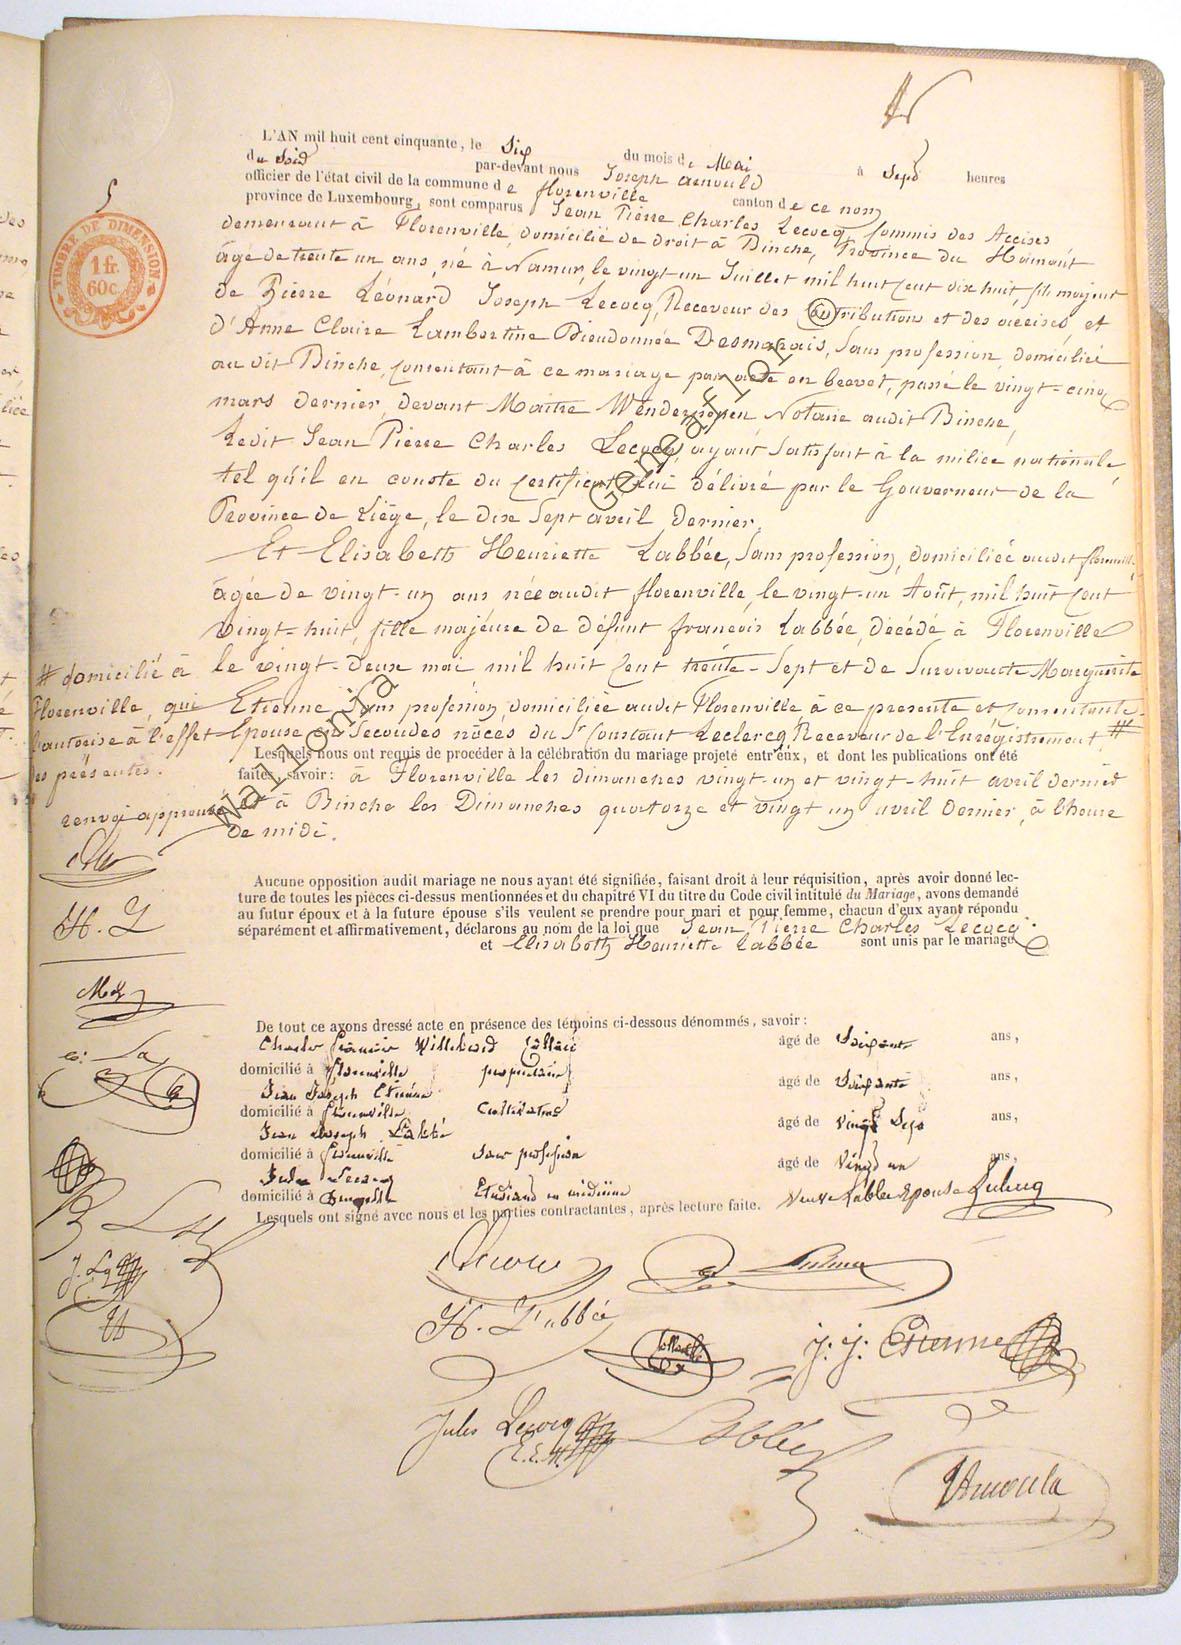 5
TIMBRE DE DIMENSION
1 fr.
60c.
L'AN mil huit cent cinquante, le Six du mois de Mai à Sept heures
du Soir par-devant nous Joseph Arnould
officier de l'état civil de la commune de florenville canton de ce nom
province de Luxembourg, sont comparus Jean Pierre Charles Lecocq, Commis des Accises
demeurant à Florenville, domicilié de droit à Binche, Province du Hainaut
âgé de trente un ans, né à Namur, le vingt un Juillet mil huit Cent dix huit, fils majeur
de Pierre Léonard Joseph Lecocq, Receveur des Contributions et des accises, et
d'Anne Claire Lambertine Dieudonnée Desmarais, Sans profession, domiciliés
au dit Binche, Consentant à ce mariage par acte en brevet, passé le vingt-cinq
mars dernier, devant Maître Notaire audit Binche,
Ledit Jean Pierre Charles Lecocq, ayant Satisfait à la milice nationale,
tel qu'il en conste du Certificat lui délivré par le Gouverneur de la
Province de Liége, le dix Sept avril dernier.
Et Elisabeth Henriette Labbée, Sans profession, domiciliée audit florenville,
âgée de vingt-un ans née audit florenville, le vingt-un Août, mil huit Cent
vingt-huit, fille majeure de défunt francois Labbée, Décédé à Florenville
le vingt-deux mai mil huit Cent trente-Sept et de Survivante Marguerite
Etienne, Sans profession, domiciliée audit Florenville à ce presente et Consentante.
Epouse en Secondes nôces du Sr Constant Leclercq Receveur de l'Enrégistrement #
# domicilié à
Florenville, qui
l'autorise à l'effet
des présentes.
renvoi approuvé
Lesquels nous ont requis de procéder à la célébration du mariage projeté entr'eux, et dont les publications ont été
faites, savoir: à Florenville les dimanches vingt-un et vingt-huit avril dernier
et à Binche les Dimanches quatorze et vingt un avril dernier, à l'heure
de midi.
Aucune opposition audit mariage ne nous ayant été signifiée, faisant droit à leur réquisition, après avoir donné lec-
ture de toutes les pièces ci-dessus mentionnées et du chapitre VI du titre du Code civil intitulé du Mariage, avons demandé
au futur époux et à la future épouse s'ils veulent se prendre pour mari et pour femme, chacun d'eux ayant répondu
séparément et affirmativement, déclarons au nom de la loi que Jean Pierre Charles Lecocq
et Elisabeth Henriette Labbée sont unis par le mariage
H. L
De tout ce avons dressé acte en présence des témoins ci-dessous dénommés, savoir:
Charles François âgé de Soixante ans,
domicilié à florenville propriétaire
Jean Joseph Etienne âgé de Soixante ans,
domicilié à florenville Cultivateur
Jean Joseph Labbé âgé de vingt Sept ans,
domicilié à florenville Sans profession
Jules Lecocq âgé de vingt un ans,
domicilié à Bruxelles Etudiant en médecine
Lesquels ont signé avec nous et les parties contractantes, après lecture faite.
Veuve Labbée Epouse Leclercq
H. Labbée
J. J. Etienne
Jules Lecocq
E. E. M.
Labbée
J. Lq
Wallonia
Genealor